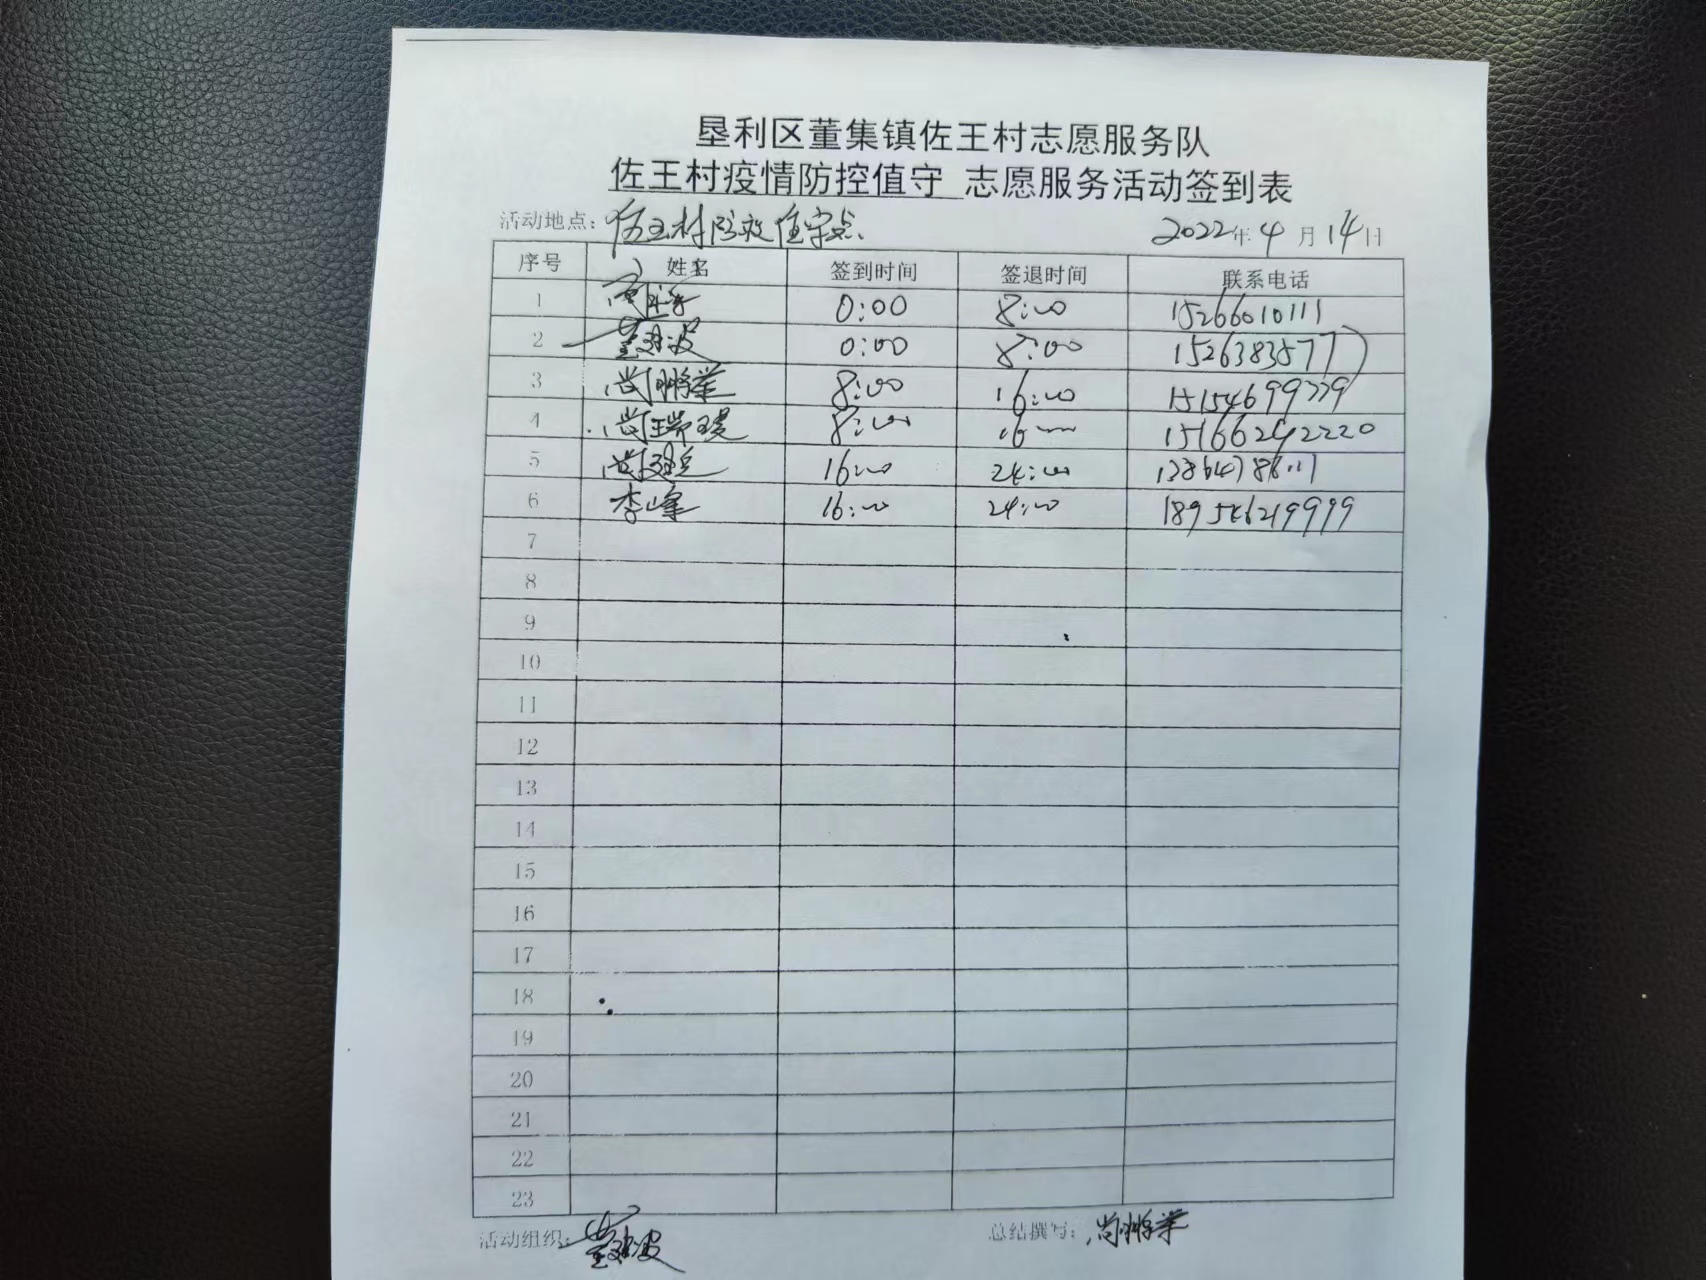 垦利区董集镇佐王村志愿服务队
佐王村疫情防控值守 志愿服务活动签到表
活动地点: 佐王村防疫值守点 2022年 4 月 14 日
序号 姓名 签到时间 签退时间 联系电话
1 0:00 8:00 15266010111
2 0:00 8:00
3 尚鹏举 8:00 16:00 15154699779
4 尚瑞瑗 8:00 16:00 15166292220
5 16:00 24:00
6 李峰 16:00 24:00 189546219999
7
8
9
10
11
12
13
14
15
16
17
18
19
20
21
22
23
活动组织: 总结撰写: 尚鹏举